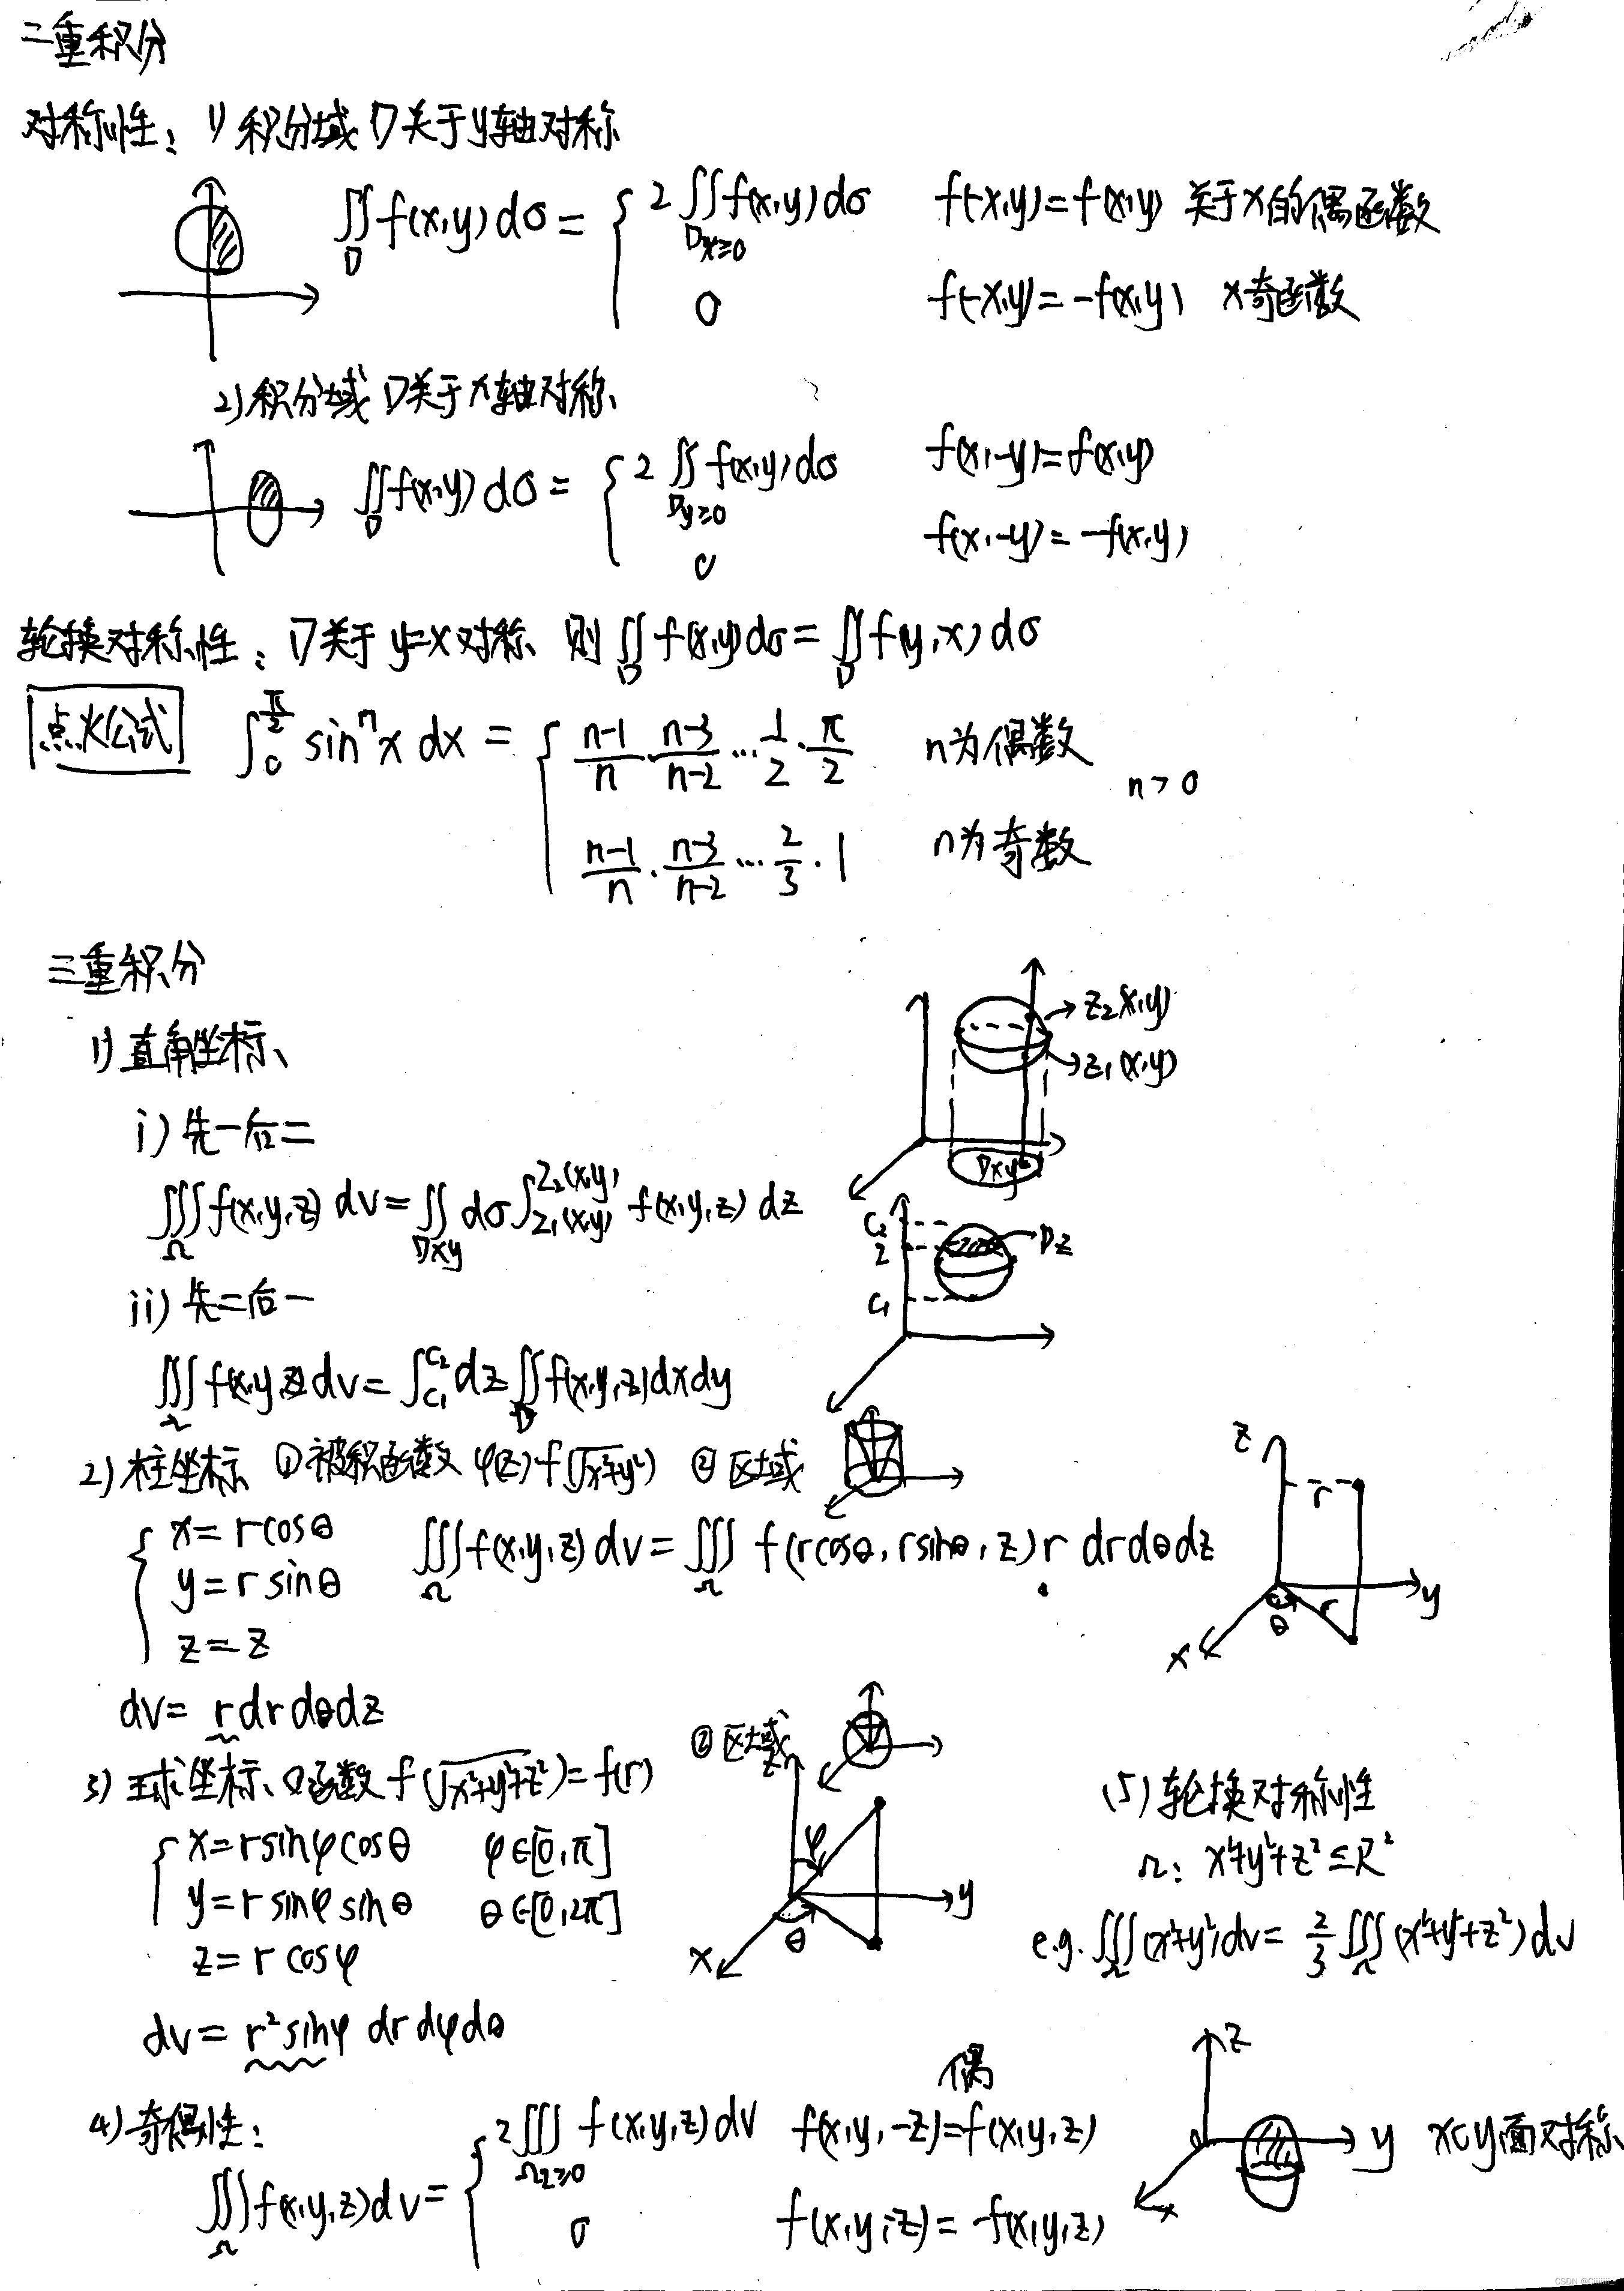 二重积分
对称性: 1) 积分域D关于y轴对称
∬_D f(x,y)dσ = { 2∬_{D_{x≥0}} f(x,y)dσ  f(-x,y)=f(x,y) 关于x的偶函数
0  f(-x,y)=-f(x,y) x奇函数
2) 积分域D关于x轴对称
∬_D f(x,y)dσ = { 2∬_{D_{y≥0}} f(x,y)dσ  f(x,-y)=f(x,y)
0  f(x,-y)=-f(x,y)
轮换对称性: D关于y=x对称 则∬_D f(x,y)dσ=∬_D f(y,x)dσ
点火公式 ∫_0^{π/2} sin^n x dx = { (n-1)/n · (n-3)/(n-2) ··· 1/2 · π/2  n为偶数
n>0
(n-1)/n · (n-3)/(n-2) ··· 2/3 · 1  n为奇数
三重积分
z₂(x,y)
1) 直角坐标
z₁(x,y)
i) 先一后二
Dxy
∭_Ω f(x,y,z) dv = ∬_{Dxy} dσ ∫_{z₁(x,y)}^{z₂(x,y)} f(x,y,z) dz
C₂
z
Dz
C₁
ii) 先二后一
∭_Ω f(x,y,z)dv = ∫_{C₁}^{C₂} dz ∬_D f(x,y,z)dxdy
2) 柱坐标 ①被积函数 φ(z)f(√(x²+y²)) ②区域
{ x=rcosθ
y=rsinθ
z=z
∭_Ω f(x,y,z)dv = ∭_Ω f(rcosθ, rsinθ, z) r drdθdz
z
r
y
r
θ
x
dv= r dr dθdz
3) 球坐标 ①函数 f(√(x²+y²+z²))=f(r) ②区域
{ x=rsinφcosθ  φ∈[0,π]
y=rsinφsinθ  θ∈[0,2π]
z=rcosφ
z
φ
y
θ
x
dv= r²sinφ dr dφdθ
(5) 轮换对称性
Ω: x²+y²+z²≤R²
e.g. ∭_Ω (x²+y²)dv = 2/3 ∭_Ω (x²+y²+z²)dv
4) 奇偶性:
偶
∭_Ω f(x,y,z)dv = { 2∭_{Ω_{z≥0}} f(x,y,z)dv  f(x,y,-z)=f(x,y,z)
0  f(x,y,-z)=-f(x,y,z)
z
y
x
xoy面对称